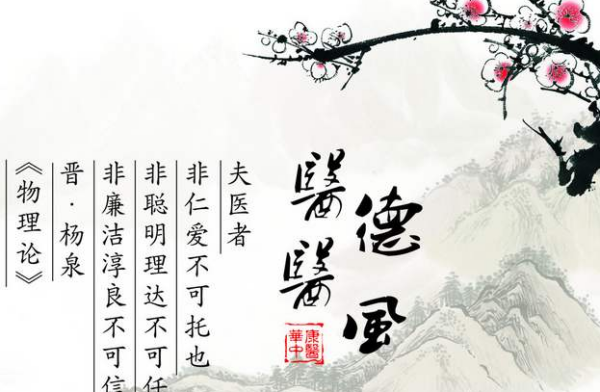 醫德
醫風
康醫
華中
夫医者
非仁爱不可托也
非聪明理达不可任
非廉洁淳良不可信
晋·杨泉
《物理论》